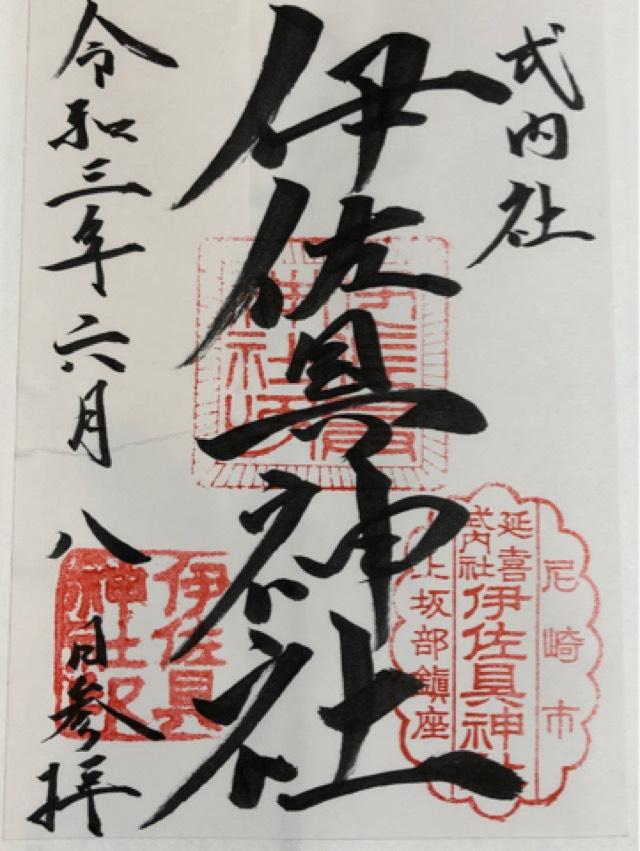 式内社
伊佐具神社
令和三年六月八日参拝
尼崎市
延喜
式内社
伊佐具神社
上坂部鎮座
伊佐具
神社印